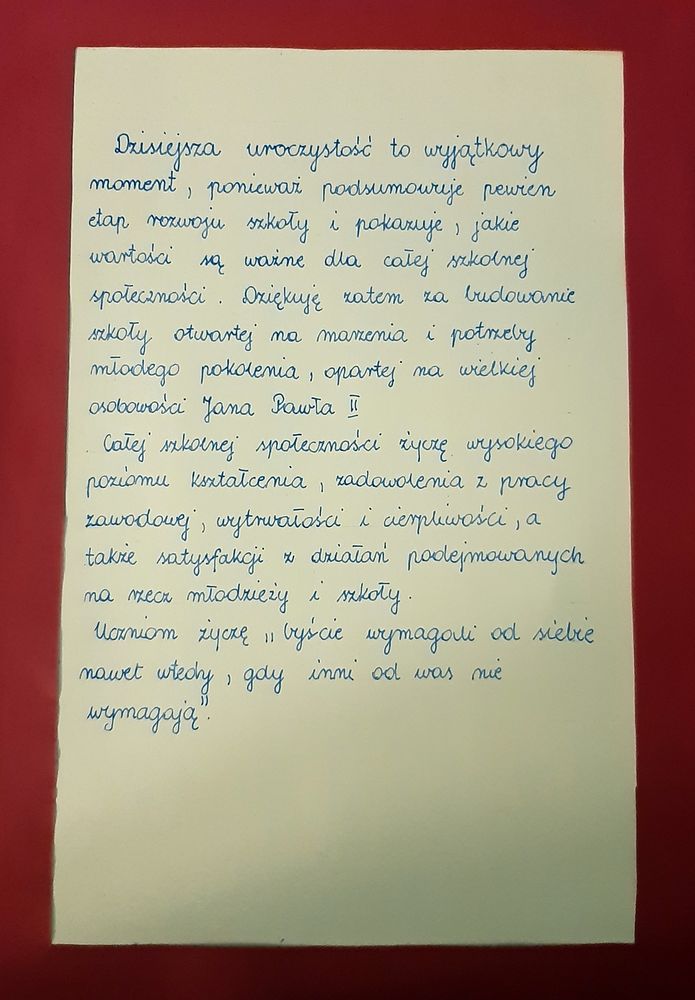 Dzisiejsza uroczystość to wyjątkowy
moment, ponieważ podsumowuje pewien
etap rozwoju szkoły i pokazuje, jakie
wartości są ważne dla całej szkolnej
społeczności. Dziękuję zatem za budowanie
szkoły otwartej na marzenia i potrzeby
młodego pokolenia, opartej na wielkiej
osobowości Jana Pawła II
Całej szkolnej społeczności życzę wysokiego
poziomu kształcenia, zadowolenia z pracy
zawodowej, wytrwałości i cierpliwości, a
także satysfakcji z działań podejmowanych
na rzecz młodzieży i szkoły.
Uczniom życzę „byście wymagali od siebie
nawet wtedy, gdy inni od was nie
wymagają".